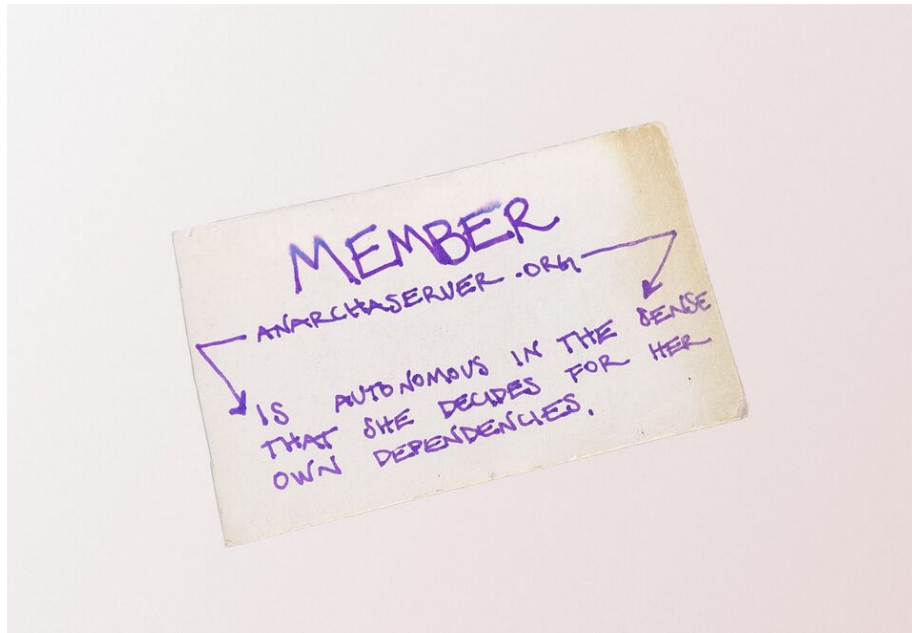 MEMBER
ANARCHASERVER.ORG
IS AUTONOMOUS IN THE SENSE
THAT SHE DECIDES FOR HER
OWN DEPENDENCIES.